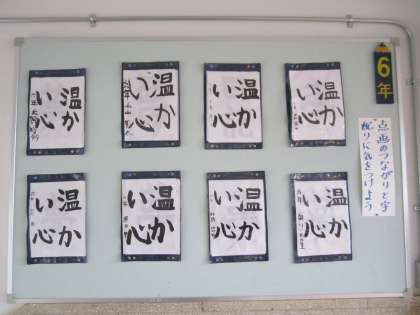 6年
点画のつながりと字
配りに気をつけよう
温か
い心
温か
い心
温か
い心
温か
い心
温か
い心
温か
い心
温か
い心
温か
い心